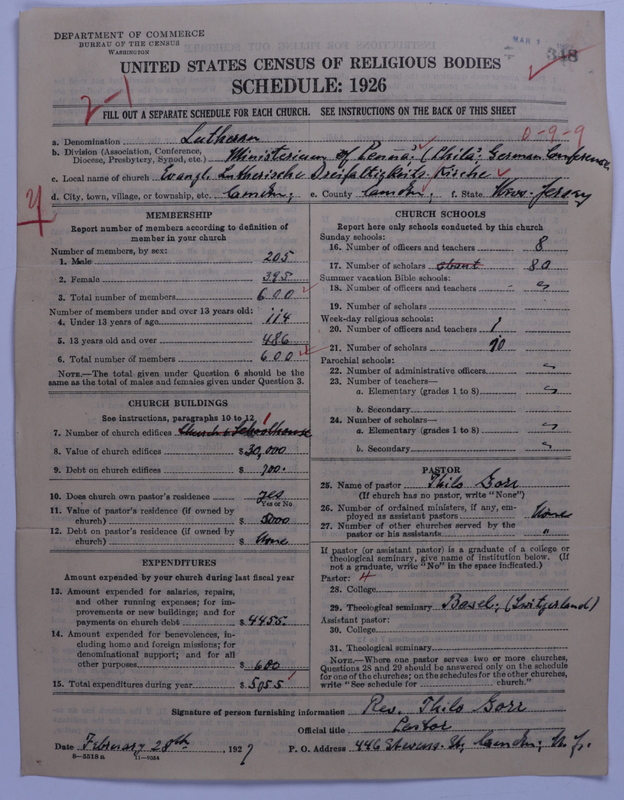 DEPARTMENT OF COMMERCE
BUREAU OF THE CENSUS
WASHINGTON
MAR 1
348
UNITED STATES CENSUS OF RELIGIOUS BODIES
SCHEDULE: 1926
2-1
FILL OUT A SEPARATE SCHEDULE FOR EACH CHURCH. SEE INSTRUCTIONS ON THE BACK OF THIS SHEET
0-9-9
a. Denomination Lutheran
b. Division (Association, Conference, Diocese, Presbytery, Synod, etc.) Ministerium of Penna. (Phila. German Conference
c. Local name of church Evangl. Lutherische Dreifaltigkeits Kirche
d. City, town, village, or township, etc. Camden, e. County Camden, f. State New Jersey
MEMBERSHIP
Report number of members according to definition of
member in your church
Number of members, by sex:
1. Male 205
2. Female 395
3. Total number of members 600
Number of members under and over 13 years old:
4. Under 13 years of age 114
5. 13 years old and over 486
6. Total number of members 600
NOTE.—The total given under Question 6 should be
same as the total of males and females given under Question 3.
CHURCH BUILDINGS
See instructions, paragraphs 10 to 12
1
7. Number of church edifices Church & Schoolhouse
8. Value of church edifices $30,000
9. Debt on church edifices $ 700.
10. Does church own pastor's residence yes
Yes or No
11. Value of pastor's residence (if owned by
church) $ 5000
12. Debt on pastor's residence (if owned by
church) $ None
EXPENDITURES
Amount expended by your church during last fiscal year
13. Amount expended for salaries, repairs,
and other running expenses; for im-
provements or new buildings; and for
payments on church debt $ 4455.
14. Amount expended for benevolences, in-
cluding home and foreign missions; for
denominational support; and for all
other purposes $ 600
15. Total expenditures during year $ 5055
CHURCH SCHOOLS
Report here only schools conducted by this church
Sunday schools:
16. Number of officers and teachers 8
17. Number of scholars about 80
Summer vacation Bible schools:
18. Number of officers and teachers
19. Number of scholars
Week-day religious schools:
20. Number of officers and teachers 1
21. Number of scholars
Parochial schools:
22. Number of administrative officers
23. Number of teachers—
a. Elementary (grades 1 to 8)
b. Secondary
24. Number of scholars—
a. Elementary (grades 1 to 8)
b. Secondary
PASTOR
25. Name of pastor Thilo Gorr
(If church has no pastor, write "None")
26. Number of ordained ministers, if any, em-
ployed as assistant pastors None
27. Number of other churches served by the
pastor or his assistants "
If pastor (or assistant pastor) is a graduate of a college or
theological seminary, give name of institution below. (If
not a graduate, write "No" in the space indicated.)
Pastor: 4
28. College
29. Theological seminary Basel, (Switzerland)
Assistant pastor:
30. College
31. Theological seminary
NOTE.—Where one pastor serves two or more churches,
Questions 28 and 29 should be answered only on the schedule
for one of the churches; on the schedules for the other churches,
write "See schedule for church."
Signature of person furnishing information Rev. Thilo Gorr
Official title Pastor
Date February 28th, 1927 P. O. Address 446 Stevens St, Camden, N. J.
8-5518 a 11-9034